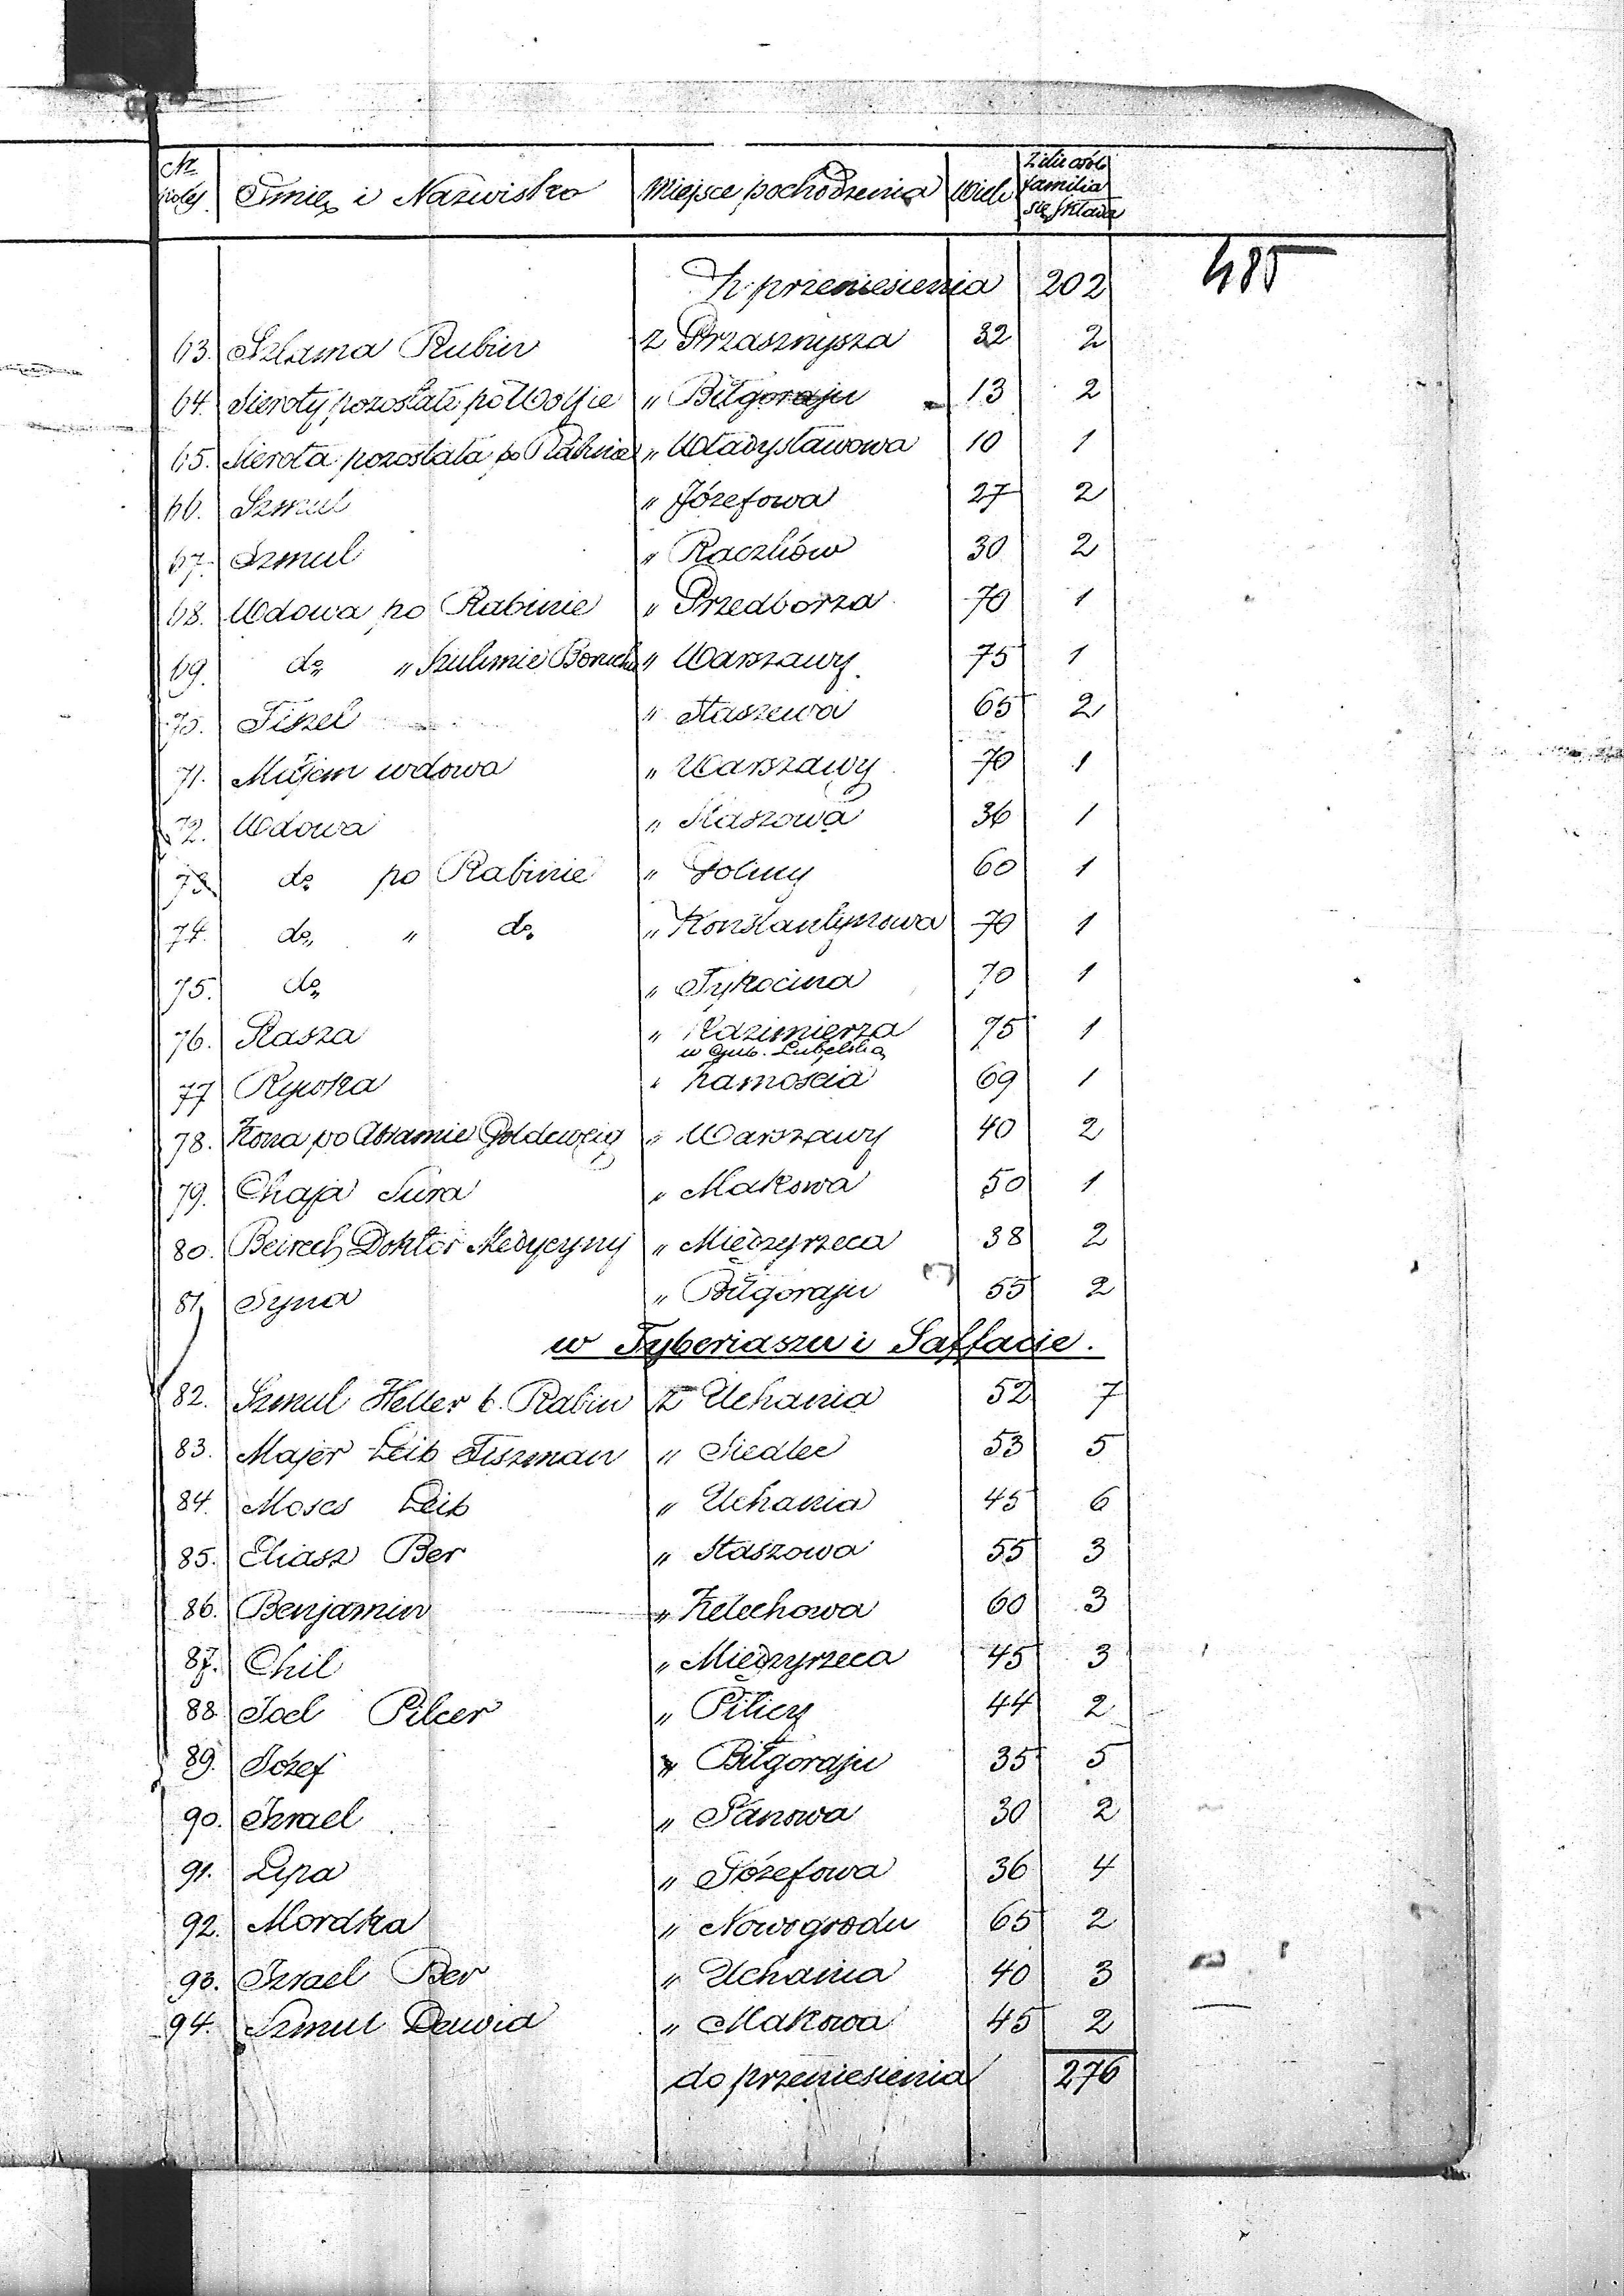 Nr kolej Imię i Nazwisko Miejsce pochodzenia Wiek Z ilu osób familia się składa
Z przeniesienia 202 485
63. Szlama Rubin z Przasnysza 32 2
64. Sieroty pozostałe po Wolfie " Biłgoraju 13 2
65. Sierota pozostała po Rabinie " Władysławowa 10 1
66. Szmul " Józefowa 27 2
67. Szmul " Raczków 30 2
68. Wdowa po Rabinie " Przedborza 70 1
69. do " Szulimie Boruchu " Warszawy 75 1
70. Fiszel " Staszewa 65 2
71. Majem wdowa " Warszawy 70 1
72. Wdowa " Staszowa 36 1
73. do po Rabinie " Goliny 60 1
74. do " do " Konstantynowa 70 1
75. do " Tykocina 70 1
76. Rasza " Kazimierza 75 1
w Gub. Lubelską
77 Rywka " Zamościa 69 1
78. Żona po Abramie Goldcweig " Warszawy 40 2
79. Chaja Sura " Makowa 50 1
80. Beirech Doktor Medycyny " Międzyrzeca 38 2
81. Syna " Biłgoraju 55 2
w Tyberiaszu i Saffacie.
82. Szmul Heller b. Rabin z Uchania 52 7
83. Majer Leib Fiszman " Siedlec 53 5
84. Moses Leib " Uchania 45 6
85. Eliasz Ber " Staszowa 55 3
86. Benjamin " Żelechowa 60 3
87. Chil " Międzyrzeca 45 3
88. Joel Pilcer " Pilicy 44 2
89. Józef " Biłgoraju 35 5
90. Izrael " Janowa 30 2
91. Lipa " Józefowa 36 4
92. Mordka " Nowogrodu 65 2
93. Izrael Ber " Uchania 40 3
94. Szmul Dawid " Makowa 45 2
do przeniesienia 276